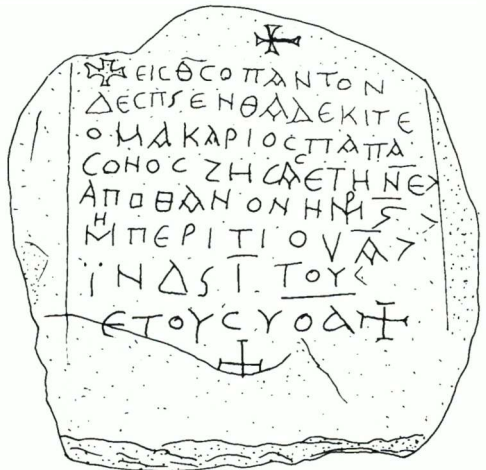 ✠
✠ΕΙCΘ̅CΟΠΑΝΤΟΝ
ΔΕCΠSΕΝΘΑΔΕΚΙΤΕ
ΟΜΑΚΑΡΙΟCΠΑΠΑ
CΟΝΟCΖΗCΑCΕΤΗΝ̅Ε̅
ΑΠΟΘΑΝΟΝΗΜΡS̅
ΜΗΠΕΡΙΤΙΟΥΑ̅
ΪΝΔSΙ̅ΤΟΥ
ΕΤΟΥCΥΟΑ✠
✠